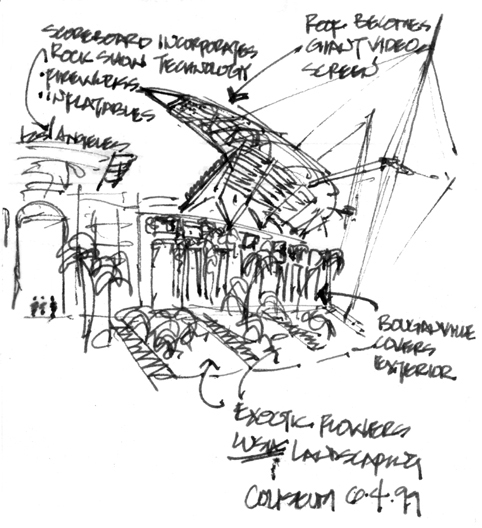 SCOREBOARD INCORPORATES
ROCK SHOW TECHNOLOGY
• FIREWORKS
• INFLATABLES
LOS ANGELES
ROOF BECOMES
GIANT VIDEO
SCREEN
BOUGANVILLE
COVERS
EXTERIOR
EXOTIC FLOWERS
LANDSCAPING
COLISEUM 10.4.99